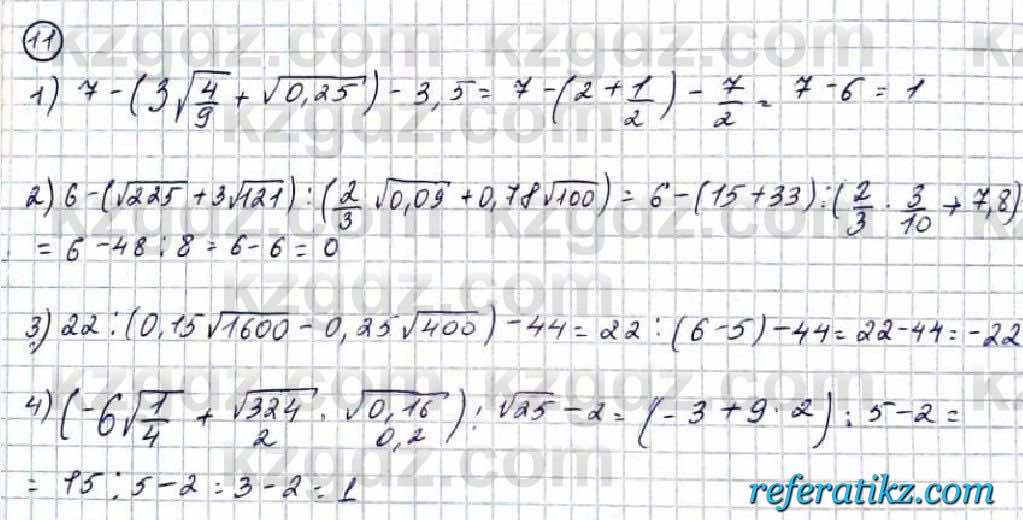 11
1) 7 - (3√4/9 + √0,25) - 3,5 = 7 - (2 + 1/2) - 7/2 = 7 - 6 = 1
2) 6 - (√225 + 3√121) : (2/3 √0,09 + 0,78√100) = 6 - (15 + 33) : (2/3 · 3/10 + 7,8)
= 6 - 48 : 8 = 6 - 6 = 0
3) 22 : (0,15√1600 - 0,25√400) - 44 = 22 : (6 - 5) - 44 = 22 - 44 = -22
4) (-6√1/4 + √324/2 · √0,16/0,2) : √25 - 2 = (-3 + 9 · 2) : 5 - 2 =
= 15 : 5 - 2 = 3 - 2 = 1
referatikz.com